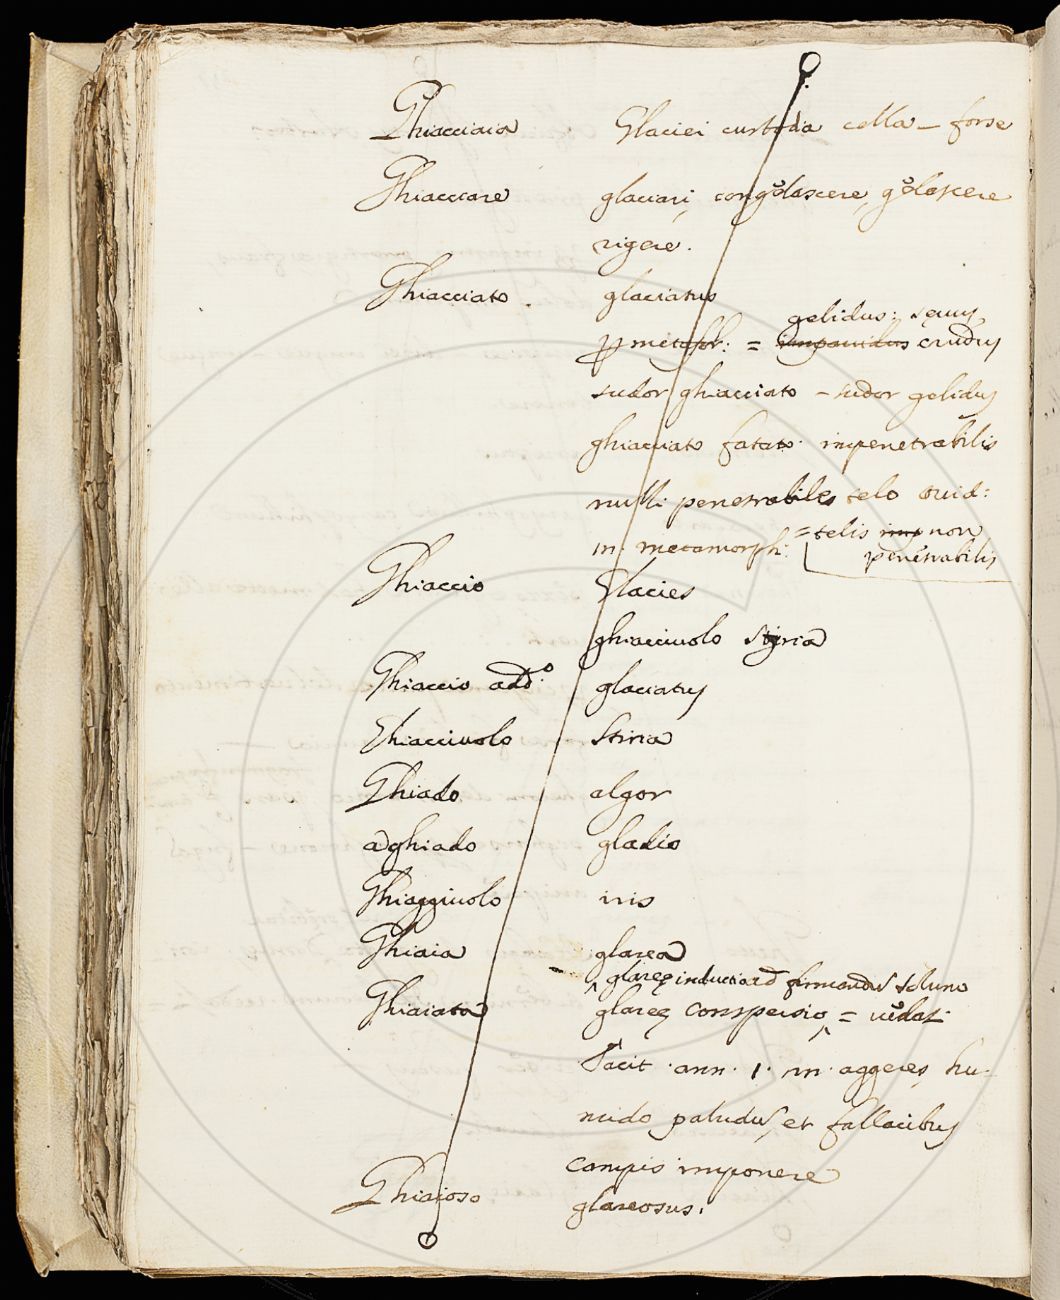 Ghiacciaia Glaciei custodia cella – forse
Ghiacciare glaciari, congelascere, gelascere
rigere.
Ghiacciato. glaciatus
gelidus: sęvus
p metafor: = impavidus crudus
sudor ghiacciato – sudor gelidus
ghiacciato fatato. impenetrabilis
nulli penetrabiles telo ovid:
in metamorph: = telis imp non
penetrabilis
Ghiaccio Glacies
ghiacciuolo stiria
Ghiaccio add.º glaciatus
Ghiacciuolo Stiria
Ghiado algor
adghiado gladio
Ghiaggiuolo iris
Ghiaia glarea
glareę inductio ad firmandum
Ghiaiata glareę conspersio = vedas.
Tacit. ann. 1. in. aggeres hu-
mido paludum, et fallacibus
campis imponere
Ghiaioso glareosus.